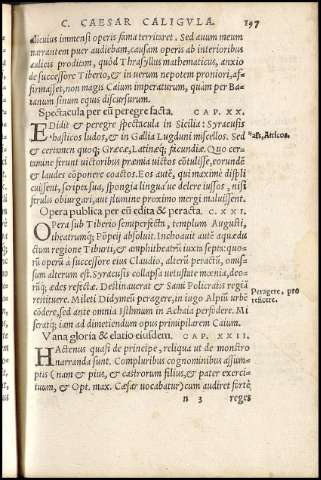 C. CAESAR CALIGVLA. 197
alicuius immensi operis fama territaret. Sed auum meum
narrantem puer audiebam, causam operis ab interioribus
aulicis proditam, quòd Thrasyllus mathematicus, anxio
de successore Tiberio, & in uerum nepotem proniori, af-
firmasset, non magis Caium imperaturum, quàm per Ba-
ianum sinum equis discursurum.
Spectacula per eũ peregre facta. CAP. XX.
EDidit & peregre spectacula in Sicilia: Syracusis
hasticos ludos, & in Gallia Lugduni miscellos. Sed
& certamen quoq; Græcæ, Latinæq; facundiæ. Quo cer-
tamine ferunt uictoribus præmia uictos cõtulisse, eorundẽ
& laudes cõponere coactos. Eos autẽ, qui maximè displi
cuissent, scripta sua, spongia linguaue delere iussos, nisi
ferulis obiurgari, aut flumine proximo mergi maluissent.
al's, Atticos.
Opera publica per eũ edita & peracta. C. XXI.
OPera sub Tiberio semiperfecta, templum Augusti,
theatrumq; Põpeij absoluit. Inchoauit autẽ aquædu
ctum regione Tiburti, & amphitheatrũ iuxta septa: quo-
rũ operũ a successore eius Claudio, alterũ peractũ, omis-
sum alterum est. Syracusis collapsa uetustate mœnia, deo-
rũq; ædes refectæ. Destinauerat & Sami Policratis regiã
restituere. Mileti Didymeũ peragere, in iugo Alpiũ urbẽ
cõdere, sed ante omnia Isthmum in Achaia perfodere. Mi
seratq; iam ad dimetiendum opus primipilarem Caium.
Peragere, pro
reficere.
Vana gloria & elatio eiusdem. CAP. XXII.
HActenus quasi de principe, reliqua ut de monstro
narranda sunt. Compluribus cognominibus assum-
ptis (nam & pius, & castrorum filius, & pater exerci-
tuum, & Opt. max. Cæsar uocabatur) cum audiret fortè
n 3 reges